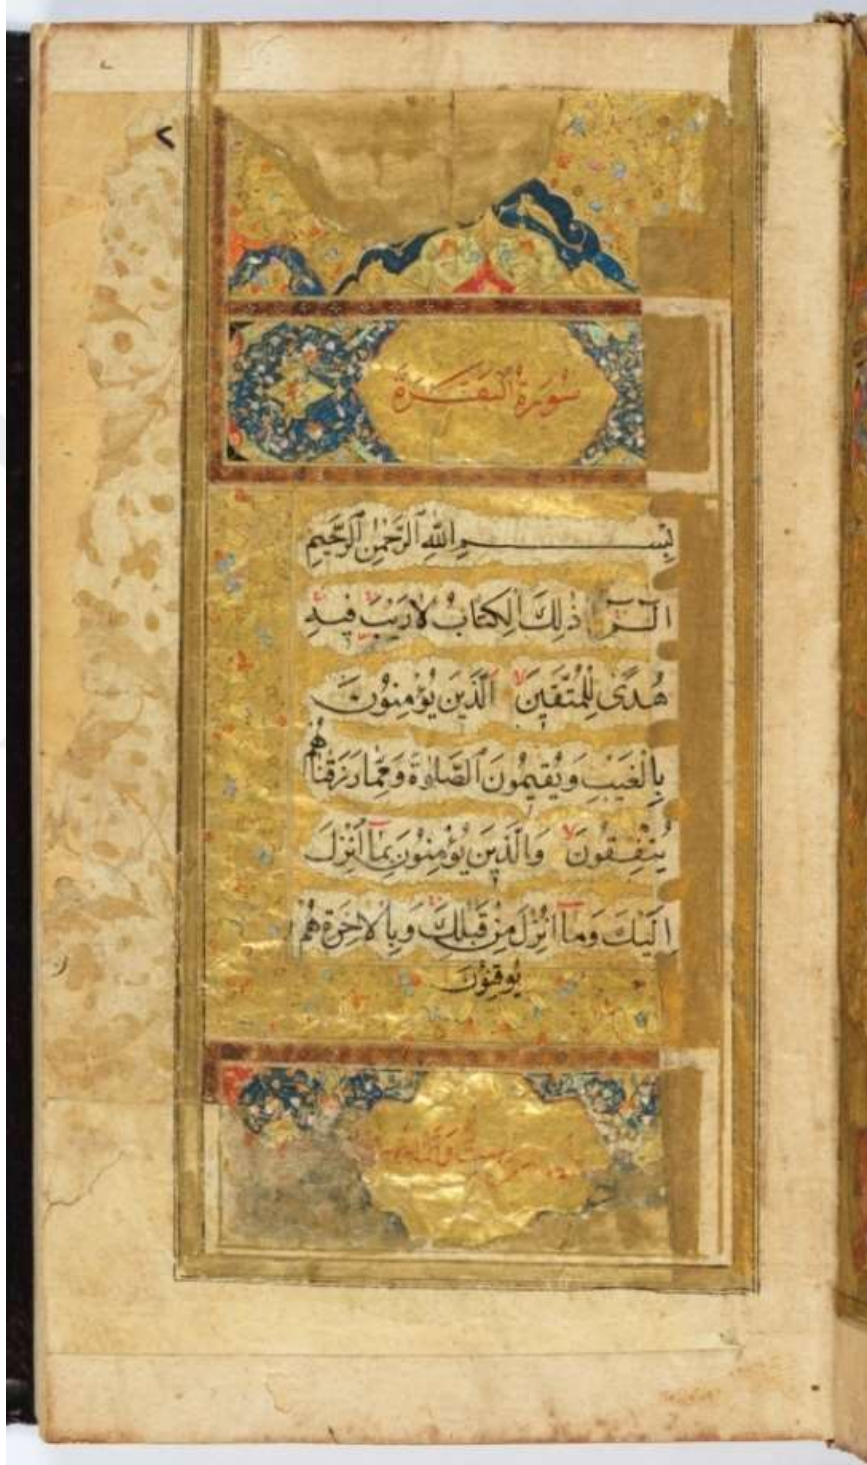 سورة البقرة
بِسْمِ اللّٰهِ الرَّحْمٰنِ الرَّحِيمِ
الٓمٓ ذٰلِكَ الْكِتَابُ لَا رَيْبَ فِيهِ
هُدًى لِلْمُتَّقِينَ الَّذِينَ يُؤْمِنُونَ
بِالْغَيْبِ وَيُقِيمُونَ الصَّلٰوةَ وَمِمَّا رَزَقْنَاهُمْ
يُنْفِقُونَ وَالَّذِينَ يُؤْمِنُونَ بِمَآ اُنْزِلَ
اِلَيْكَ وَمَآ اُنْزِلَ مِنْ قَبْلِكَ وَبِالْاٰخِرَةِ هُمْ
يُوقِنُونَ